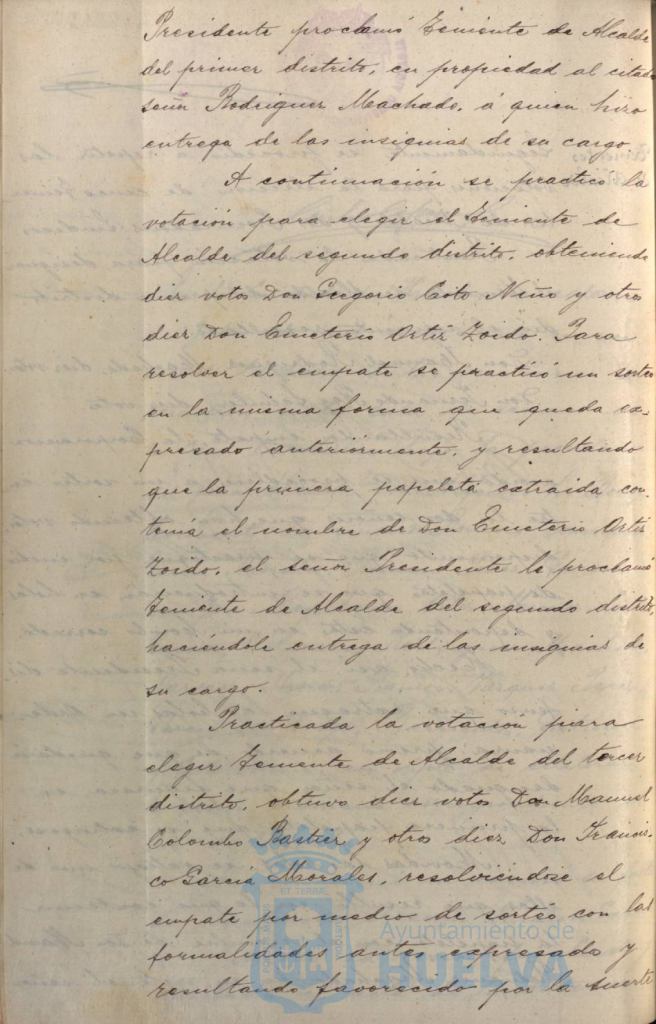 Presidente proclamó Teniente de Alcalde
del primer distrito, en propiedad al citado
señor Rodriguez Machado, á quien hizo
entrega de las insignias de su cargo.
A continuación se practicó la
votación para elegir el Teniente de
Alcalde del segundo distrito, obteniendo
diez votos Don Gregorio Coto Niño y otros
diez Don Emeterio Ortiz Zoido. Para
resolver el empate se practicó un sorteo
en la misma forma que queda ex-
presado anteriormente, y resultando
que la primera papeleta extraida con-
tenía el nombre de Don Emeterio Ortiz
Zoido, el señor Presidente le proclamó
Teniente de Alcalde del segundo distrito,
haciéndole entrega de las insignias de
su cargo.
Practicada la votación para
elegir Teniente de Alcalde del tercer
distrito, obtuvo diez votos Don Manuel
Colombo Bastier y otros diez Don Francis-
co Garcia Morales, resolviéndose el
empate por medio de sorteo con las
formalidades antes expresado y
resultando favorecido por la suerte
Ayuntamiento de
HUELVA